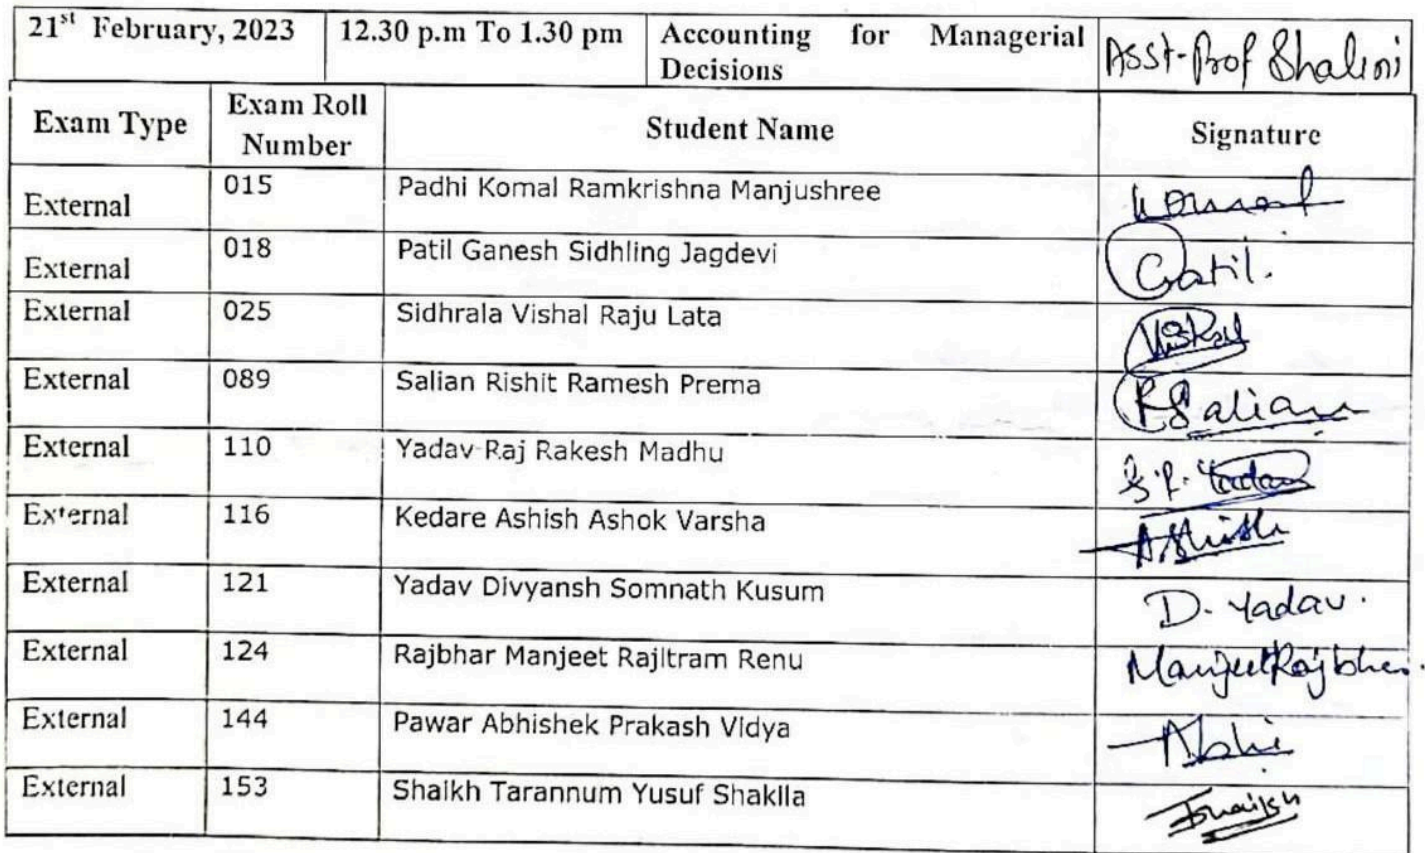 21st February, 2023 12.30 p.m To 1.30 pm Accounting for Managerial Asst-Prof Shalini
Decisions
Exam Type Exam Roll Number Student Name Signature
External 015 Padhi Komal Ramkrishna Manjushree Komal
External 018 Patil Ganesh Sidhling Jagdevi Gatil.
External 025 Sidhrala Vishal Raju Lata Vishal
External 089 Salian Rishit Ramesh Prema RSalian
External 110 Yadav Raj Rakesh Madhu Yadav
External 116 Kedare Ashish Ashok Varsha Ashish
External 121 Yadav Divyansh Somnath Kusum D. Yadav.
External 124 Rajbhar Manjeet Rajitram Renu Manjeet Rajbhar
External 144 Pawar Abhishek Prakash Vidya Abhi
External 153 Shaikh Tarannum Yusuf Shakila